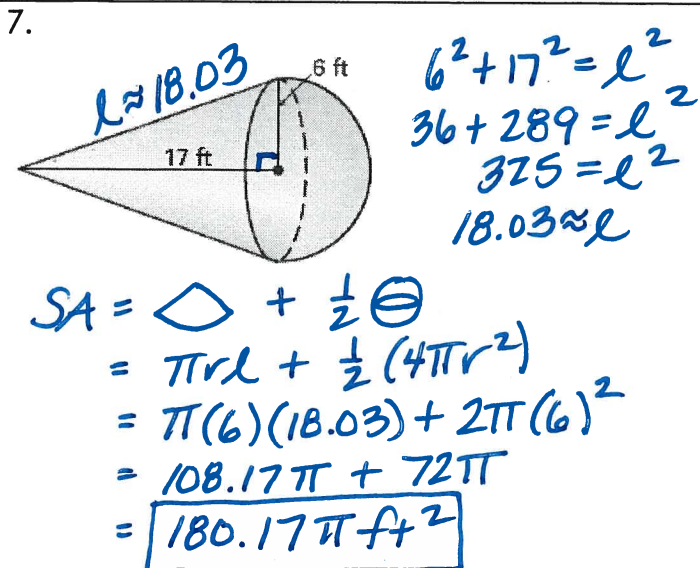 7.
l ≈ 18.03
6 ft
17 ft
6² + 17² = l²
36 + 289 = l²
325 = l²
18.03 ≈ l
SA = + 1/2
= πrl + 1/2 (4πr²)
= π(6)(18.03) + 2π(6)²
= 108.17π + 72π
= 180.17π ft²